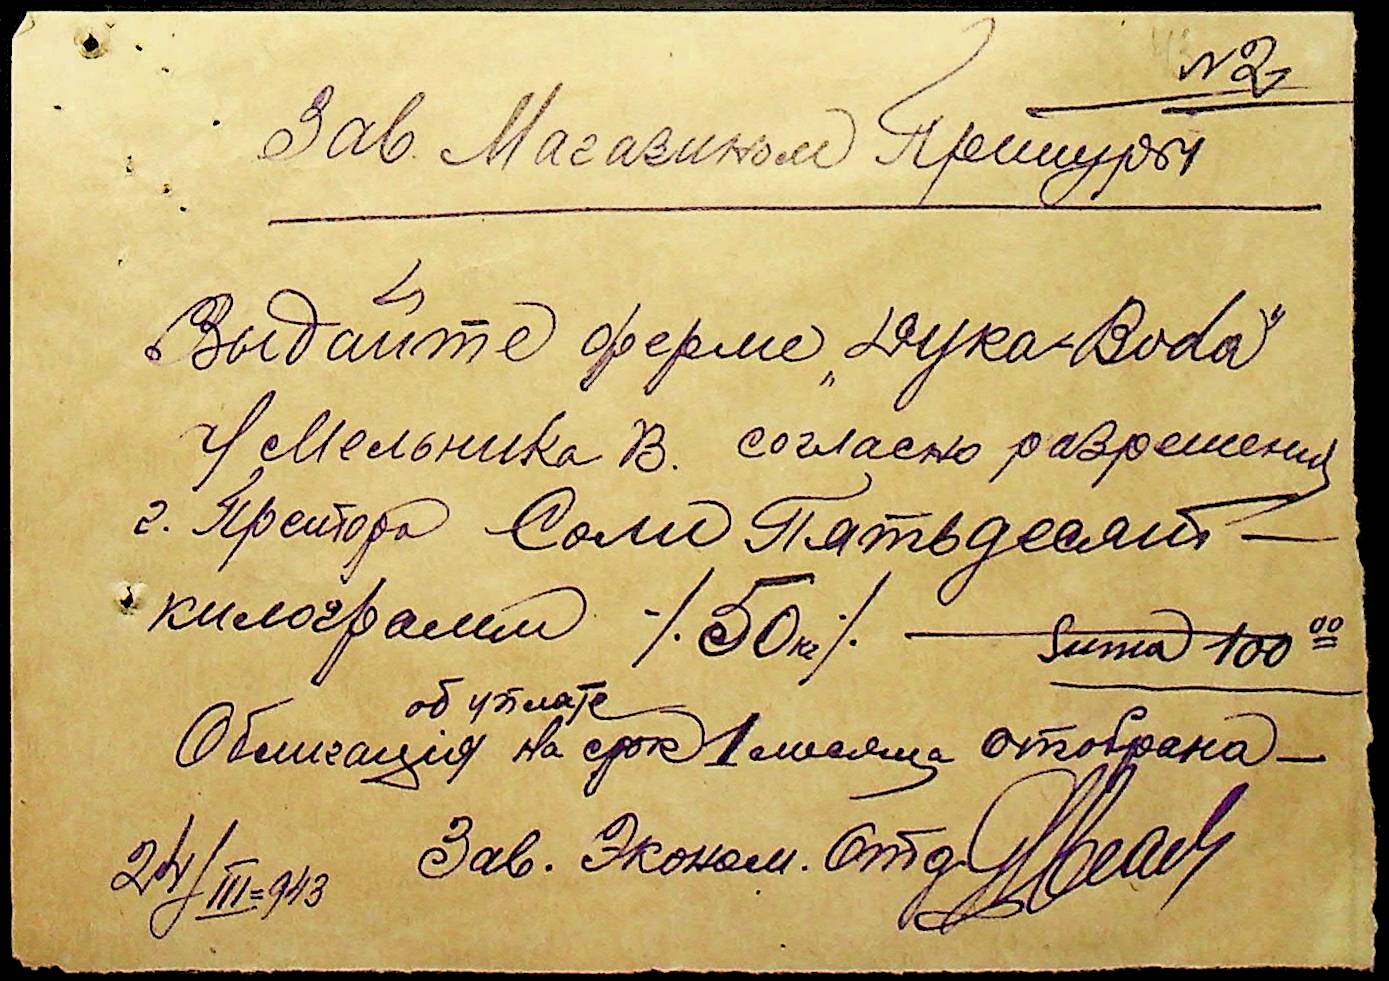 №2
Зав. Магазином Претуры
Выдайте ферме „Дука-Вода"
Ч Мельника В. согласно разрешения
г. Претора Соли Пятьдесят —
килограмм -/. 50 кг ./. — Suma 100 00
об уплате
Облигация на срок 1 месяца отобрана —
Зав. Эконом. Отд
24/III=943